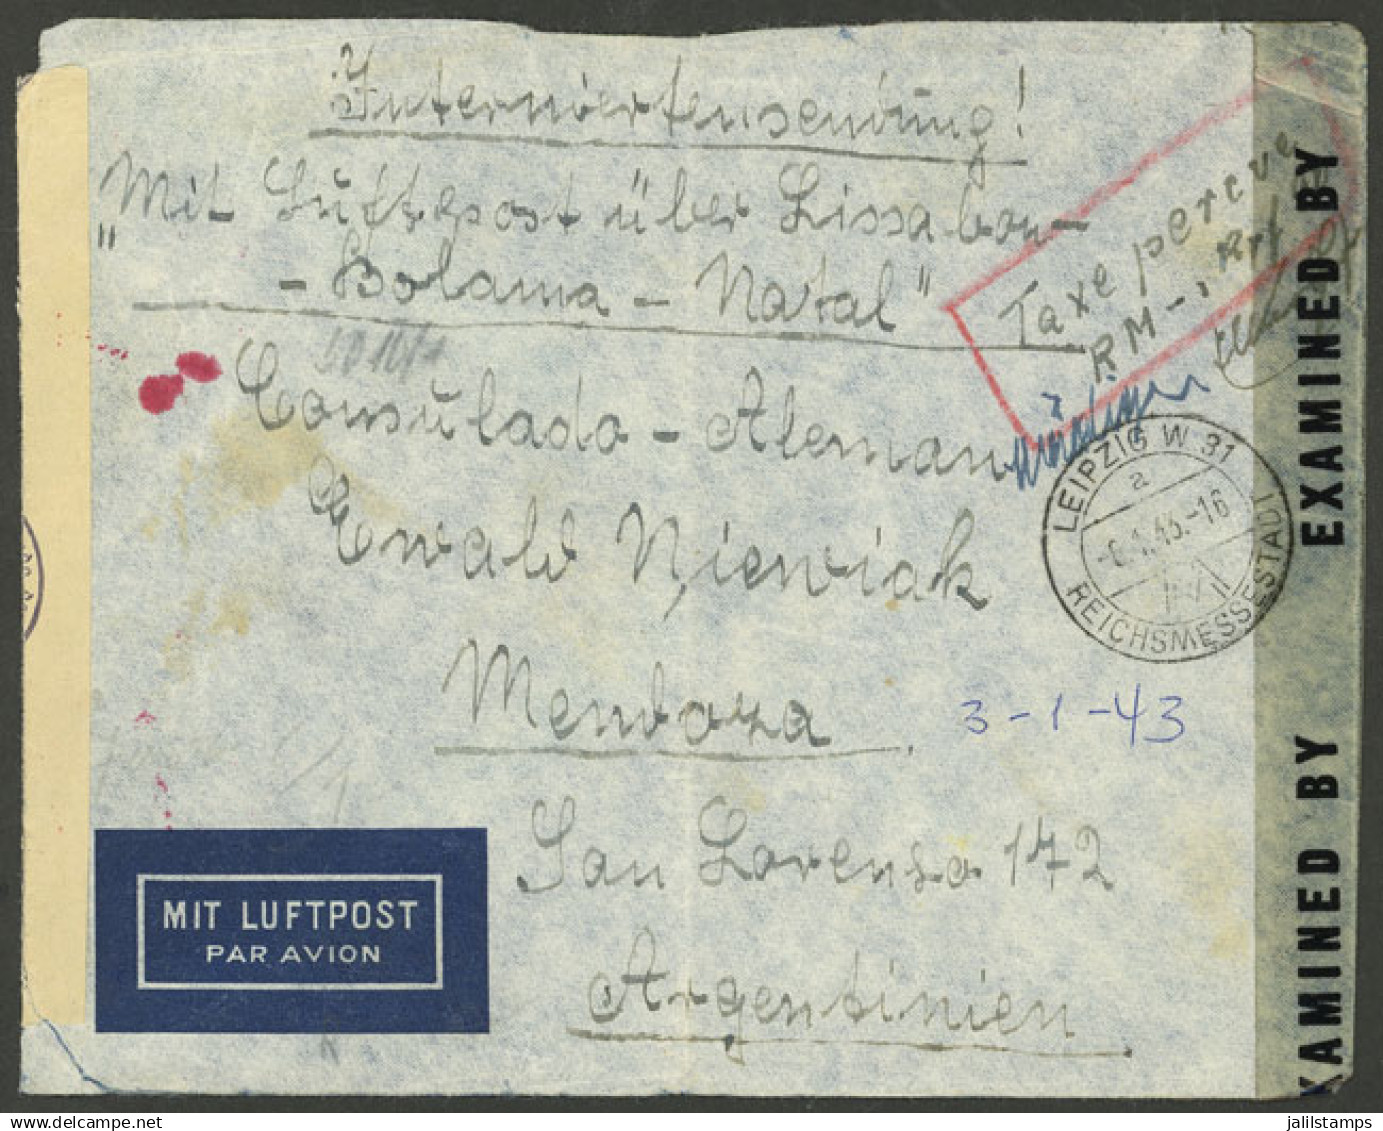 Interniertensendung!
"Mit Luftpost über Lissabon-
-Bolama-Natal"
Taxe percue
RM
Consulado-Aleman
Ewald Niewiak
Mendoza
3-1-43
San Lorenso 172
Argentinien
LEIPZIG W 31
a
-6.1.43.-16
REICHSMESSESTADT
MIT LUFTPOST
PAR AVION
EXAMINED BY
XAMINED BY
jalilstamps